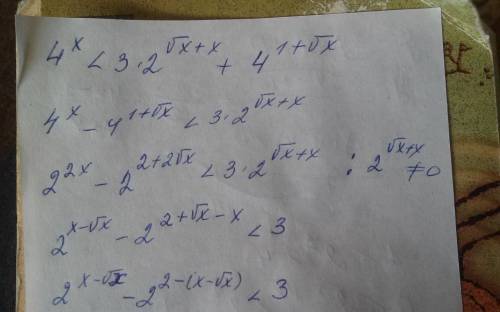 4^x < 3·2^(√x+x) + 4^(1+√x)
4^x - 4^(1+√x) < 3·2^(√x+x)
2^(2x) - 2^(2+2√x) < 3·2^(√x+x) : 2^(√x+x) ≠0
2^(x-√x) - 2^(2+√x-x) < 3
2^(x-√x) - 2^(2-(x-√x)) < 3